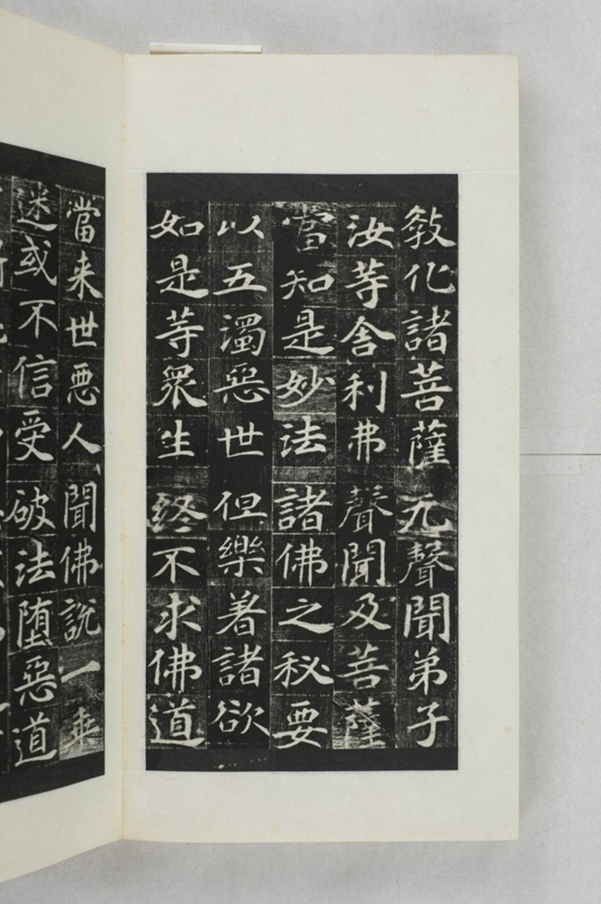 教化諸菩薩无聲聞弟子
汝等舍利弗聲聞及菩薩
當知是妙法諸佛之秘要
以五濁惡世但樂著諸欲
如是等衆生終不求佛道
當来世惡人聞佛說一乗
迷或不信受破法堕惡道